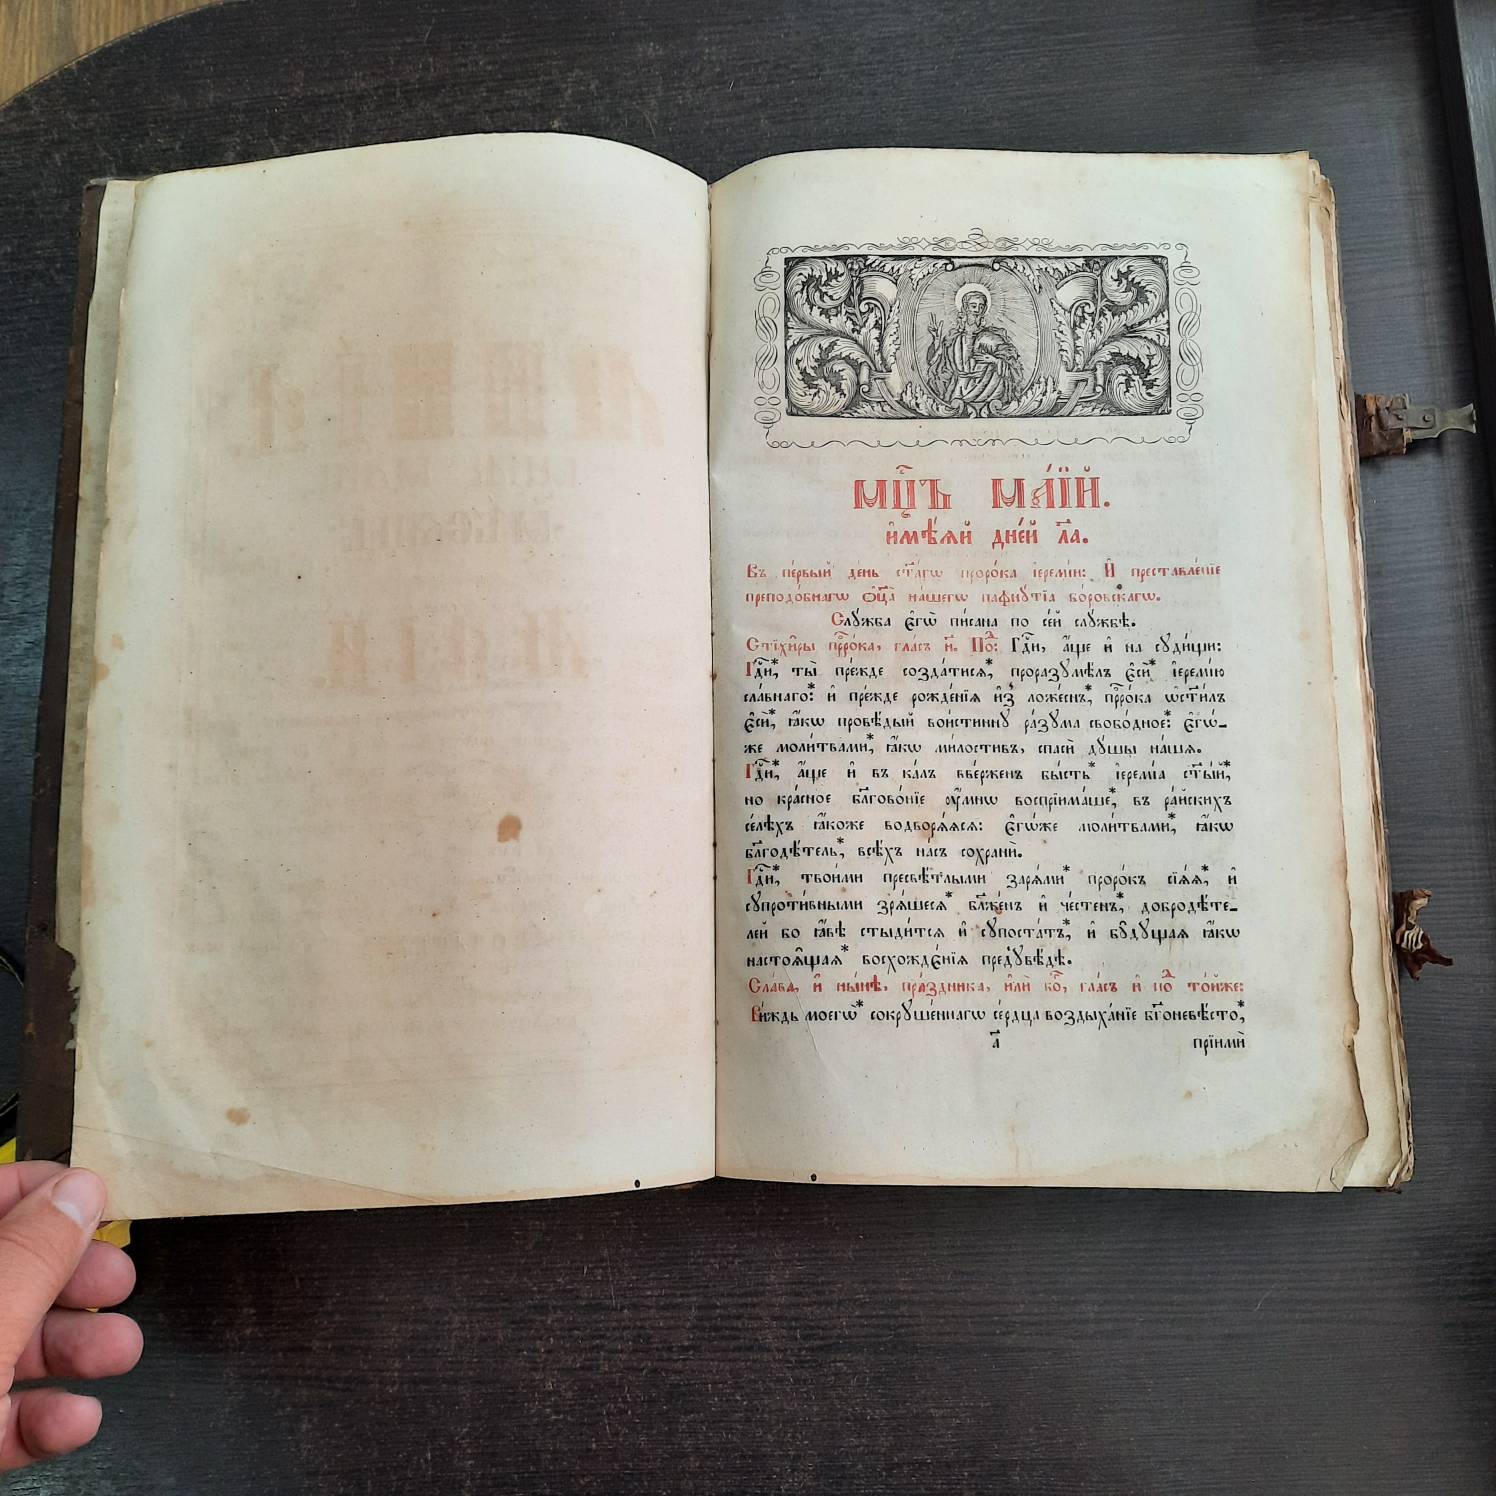 Мцⷭ҇ъ ма́їй.
и҆мѣ́ѧй дне́й л҃а.
Въ пе́рвый де́нь ст҃а́гѡ проро́ка і҆еремі́и: И҆ преставле́нїе
преподо́бнагѡ ѻ҆ц҃а̀ на́шегѡ пафнꙋ́тїа бо́ровскагѡ.
Слꙋ́жба є҆гѡ̀ пи́сана по се́й слꙋ́жбѣ.
Стїхи̑ры прⷪ҇ро́ка, гла́съ и҃. Поⷣ: Гдⷭ҇и, а҆́ще и҆ на сꙋди́щи:
Гдⷭ҇и,* ты̀ пре́жде созда́тисѧ,* проразꙋмѣ́лъ є҆сѝ* і҆еремі́ю
сла́внаго:* и҆ пре́жде рожде́нїѧ и҆з̾ ложе́снъ,* прⷪ҇ро́ка ѡ҆ст҃и́лъ
є҆сѝ,* ꙗ҆́кѡ провѣ́дый вои́стиннꙋ ра́зꙋма свобо́дное: є҆гѡ́-
же моли́твами,* ꙗ҆́кѡ ми́лостивъ, спасѝ дꙋ́шы на́шѧ.
Гдⷭ҇и,* а҆́ще и҆ въ ка́лъ вве́рженъ бы́сть* і҆еремі́а ст҃ы́й,*
но кра́сное бл҃гово́нїе ᲂу҆́мнѡ воспрїима́ше,* въ ра́йскихъ
се́лѣхъ ꙗ҆́коже водворѧ́ѧсѧ: є҆гѡ́же моли́твами,* ꙗ҆́кѡ
бл҃годѣ́тель,* всѣ́хъ на́съ сохранѝ.
Гдⷭ҇и,* твои́ми пресвѣ́тлыми зарѧ́ми* проро́къ сїѧ́ѧ,* и҆
сꙋпроти́вными зрѧ́щесѧ* бл҃же́нъ и҆ че́стенъ,* добродѣ́те-
лей бо ꙗ҆́вѣ стыди́тсѧ и҆ сꙋпоста́тъ,* и҆ бꙋ̑дꙋщаѧ ꙗ҆́кѡ
настоѧ̑щаѧ* восхожде́нїѧ предꙋвѣ́дѣ.
Сла́ва, и҆ ны́нѣ, пра́здника, и҆лѝ бо҃, гла́съ и҆ поⷣ то́йже:
Ви́ждь моегѡ̀* сокрꙋше́ннагѡ се́рдца воздыха́нїе бг҃оневѣ́сто,*
а҃ прїимѝ